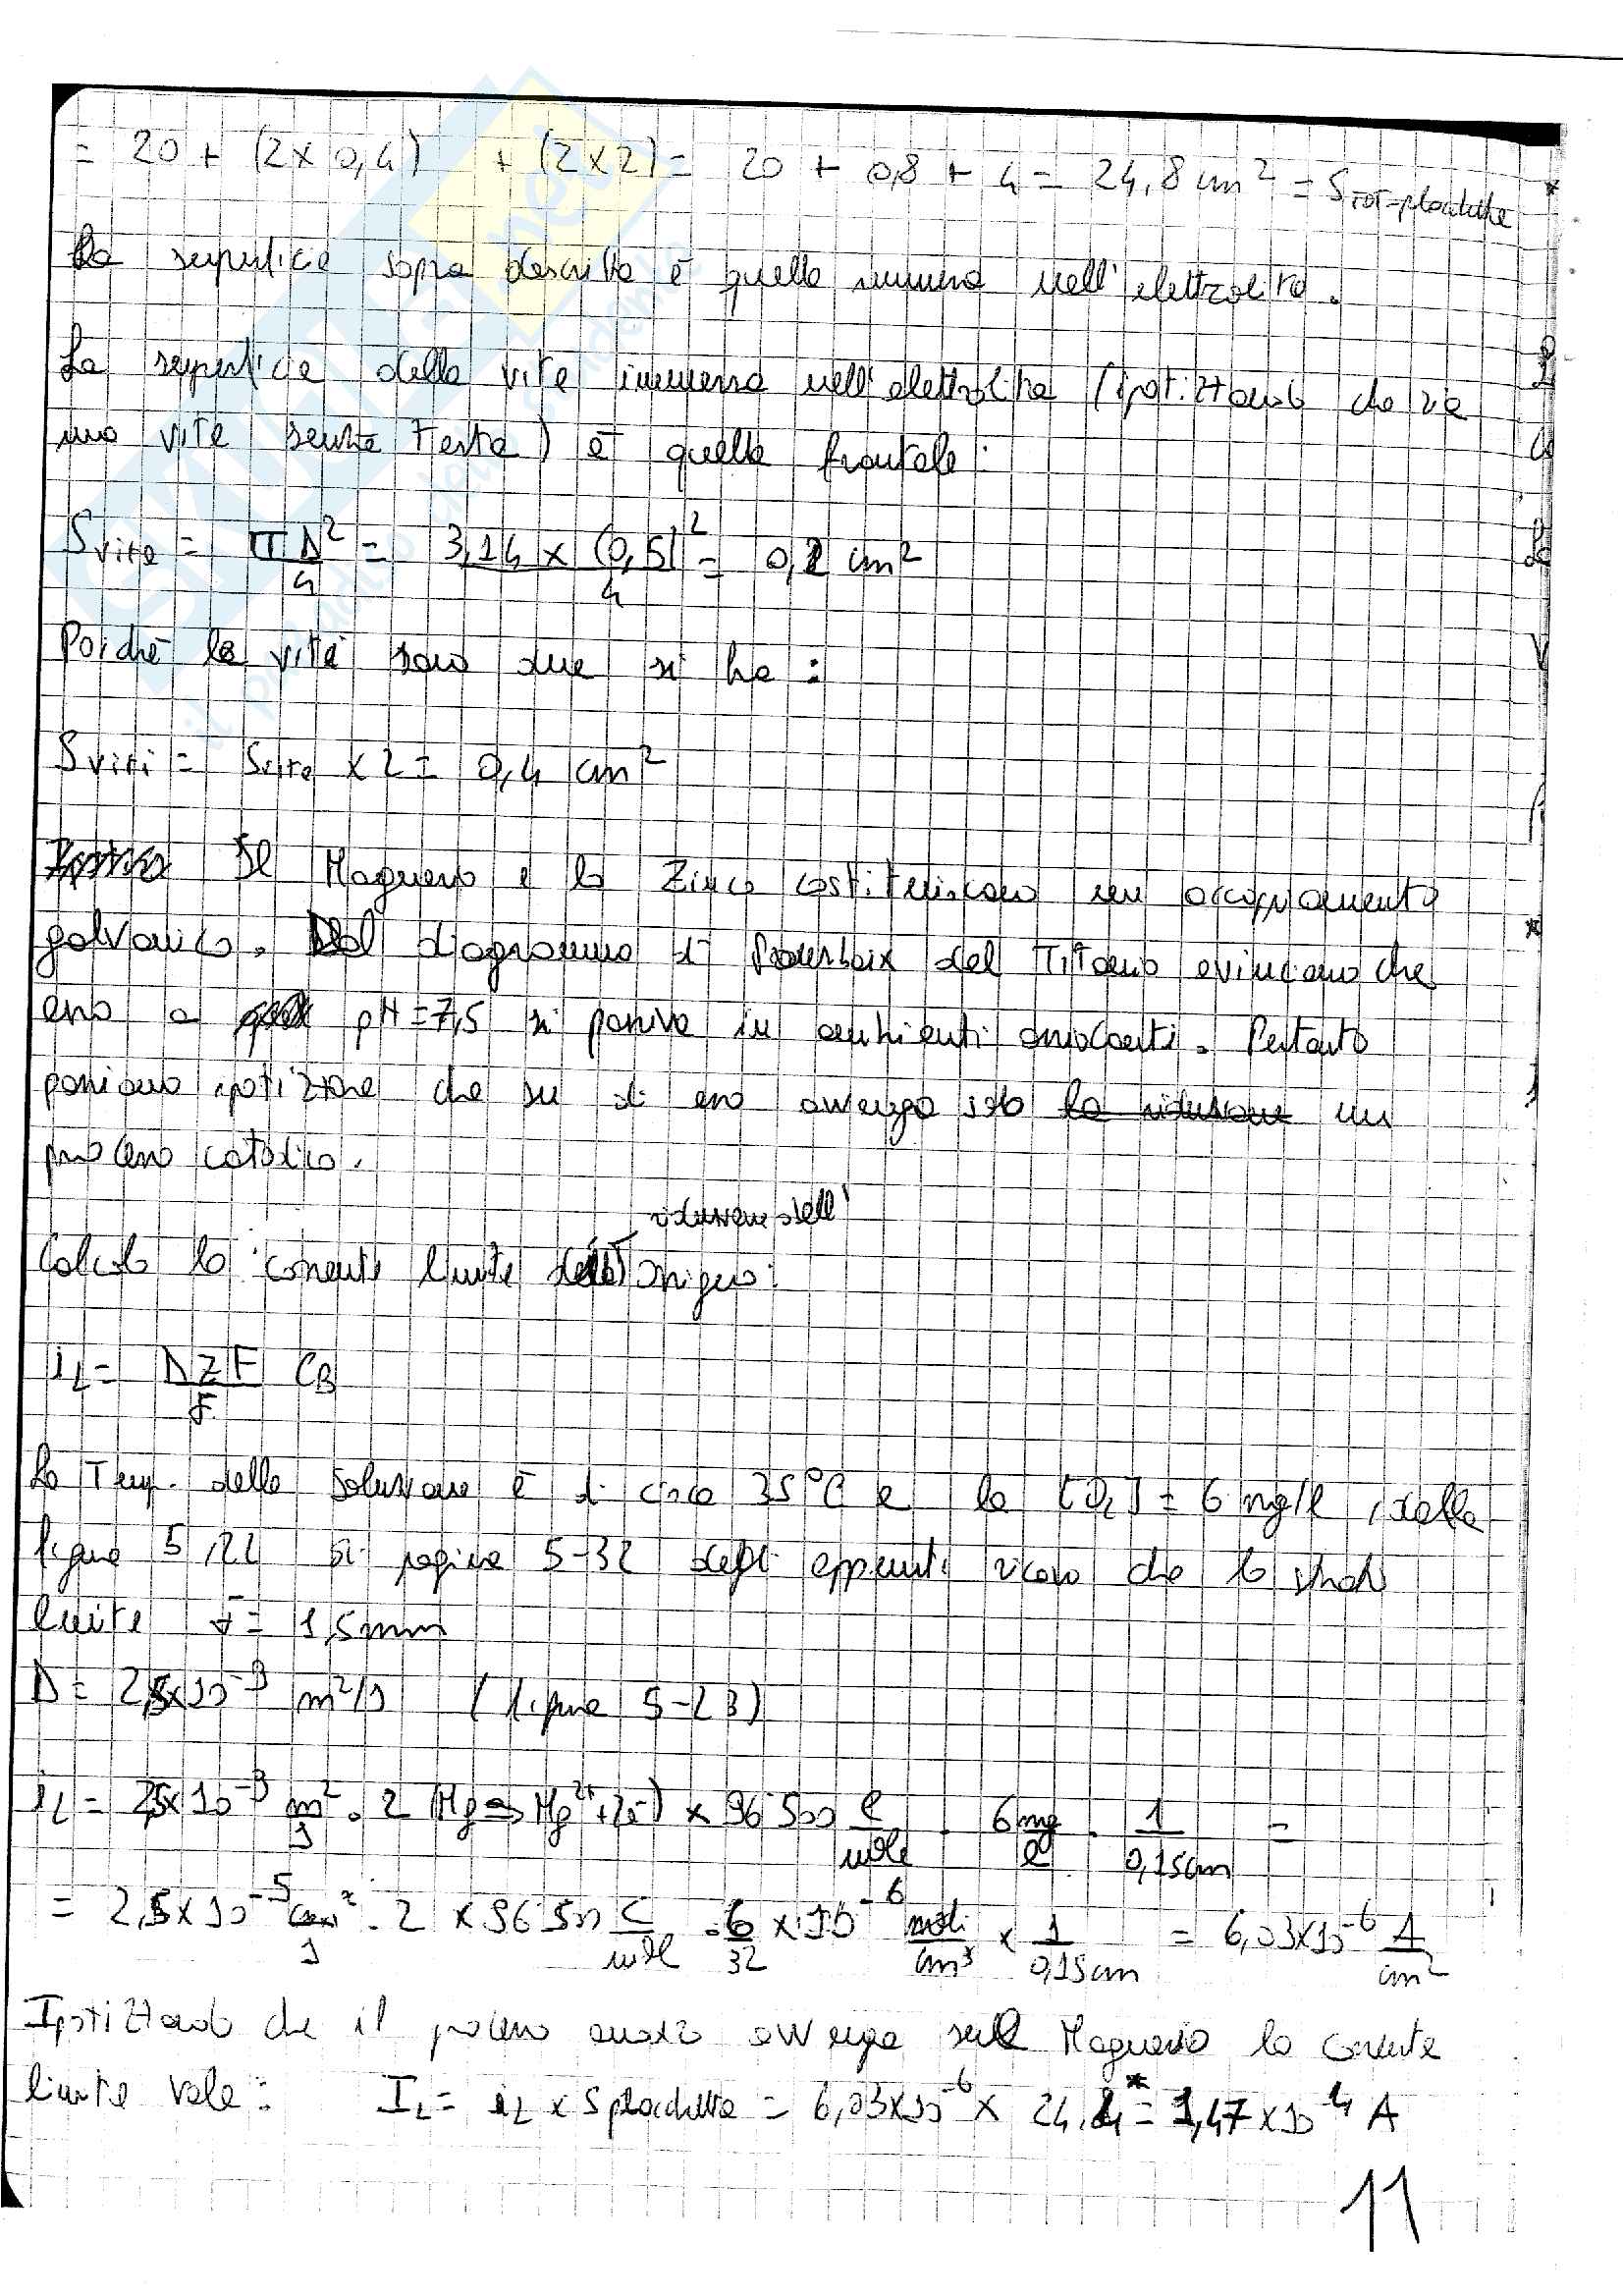 = 20 + (2x0,4) + (2x2) = 20 + 0,8 + 4 = 24,8 cm² = STOT-placchetta *
La superficie sopra descritta è quella immersa nell'elettrolita.
La superficie della vite immersa nell'elettrolita (ipotizzando che sia
una vite senza testa) è quella frontale:
Svite = πD²/4 = 3,14 x (0,5)²/4 = 0,2 cm²
Poiché le viti sono due si ha:
Sviti = Svite x 2 = 0,4 cm²
Il Magnesio e lo Zinco costituiscono un accoppiamento
galvanico. Dal diagramma di Pourbaix del Titanio evinciamo che
esso a pH=7,5 si passiva in ambienti ossidanti. Pertanto
possiamo ipotizzare che su di esso avvenga solo la riduzione un
processo catodico.
riduzione dell'
Calcolo la corrente limite ossigeno:
iL = DZF/δ CB
La Temp. della soluzione è di circa 35°C e la [O2] = 6 mg/l, dalla
figura 5,22 di pagina 5-32 degli appunti ricavo che lo strato
limite δ = 1,5mm
D = 2,5x10⁻⁹ m²/s (figura 5-23)
iL = 2,5x10⁻⁹ m²/s · 2 (Mg→Mg²⁺+2e⁻) x 96500 C/mole · 6mg/l · 1/0,15cm =
= 2,5x10⁻⁵ cm²/s · 2 x 96500 C/mole · 6/32 x 10⁻⁶ moli/cm³ x 1/0,15cm = 6,03x10⁻⁶ A/cm²
Ipotizzando che il processo anodico avvenga sul Magnesio la corrente
limite vale: IL = iL x Splacchetta = 6,03x10⁻⁶ x 24,4* = 1,47x10⁻⁴ A
11